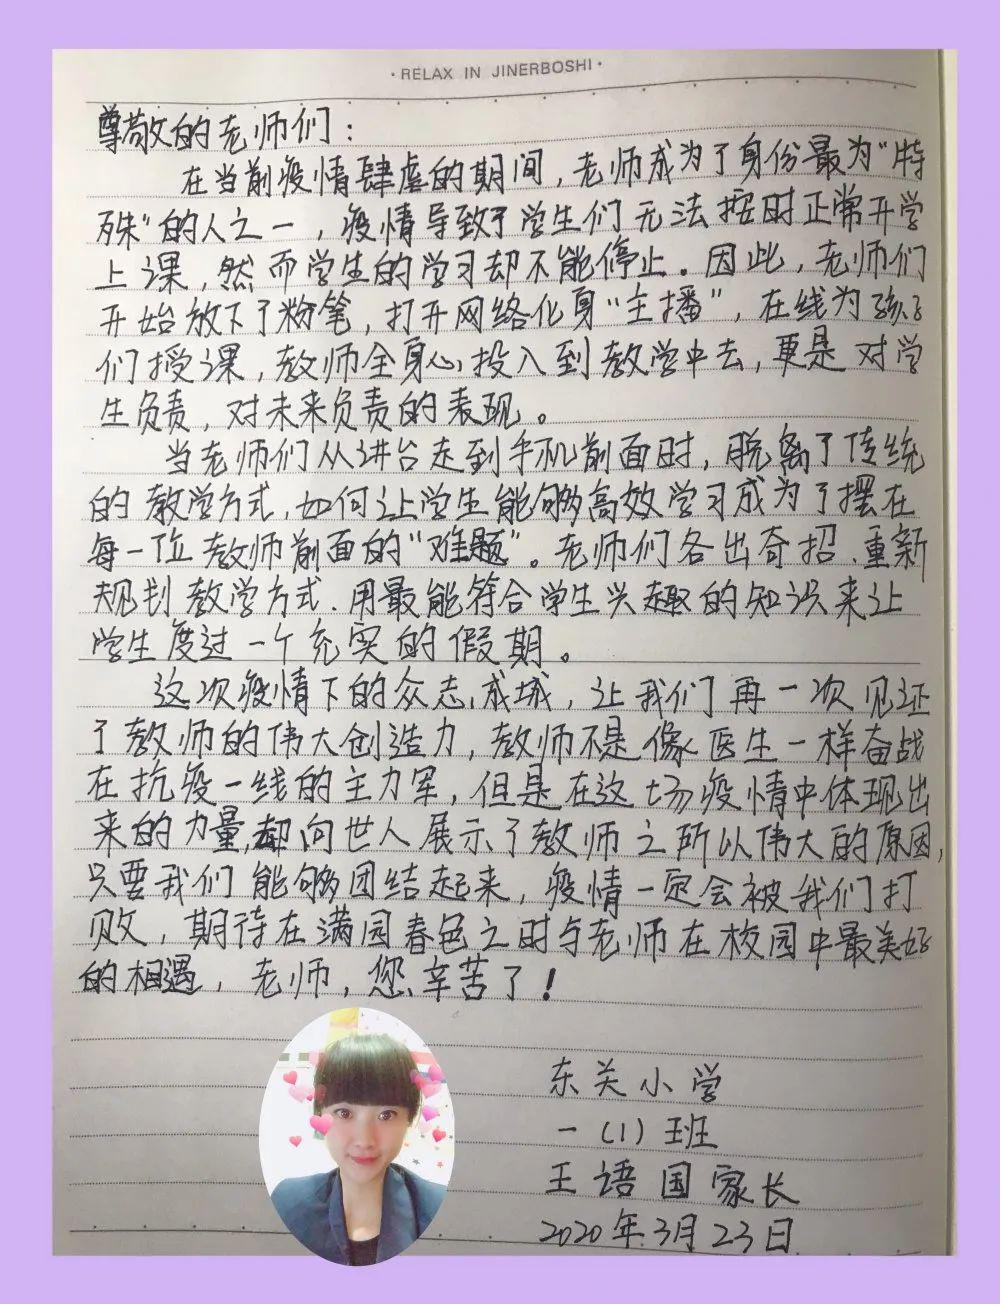 ·RELAX IN JINERBOSHI·
尊敬的老师们：
在当前疫情肆虐的期间，老师成为了身份最为“特
殊”的人之一，疫情导致了学生们无法按时正常开学
上课，然而学生的学习却不能停止。因此，老师们
开始放下了粉笔，打开网络化身“主播”，在线为孩子
们授课，教师全身心投入到教学中去，更是对学
生负责，对未来负责的表现。
当老师们从讲台走到手机前面时，脱离了传统
的教学方式，如何让学生能够高效学习成为了摆在
每一位教师前面的“难题”。老师们各出奇招、重新
规划教学方式、用最能符合学生兴趣的知识来让
学生度过一个充实的假期。
这次疫情下的众志成城，让我们再一次见证
了教师的伟大创造力，教师不是像医生一样奋战
在抗疫一线的主力军，但是在这场疫情中体现出
来的力量，却向世人展示了教师之所以伟大的原因，
只要我们能够团结起来，疫情一定会被我们打
败，期待在满园春色之时与老师在校园中最美好
的相遇，老师，您辛苦了！
东关小学
一（1）班
王语国家长
2020年3月23日